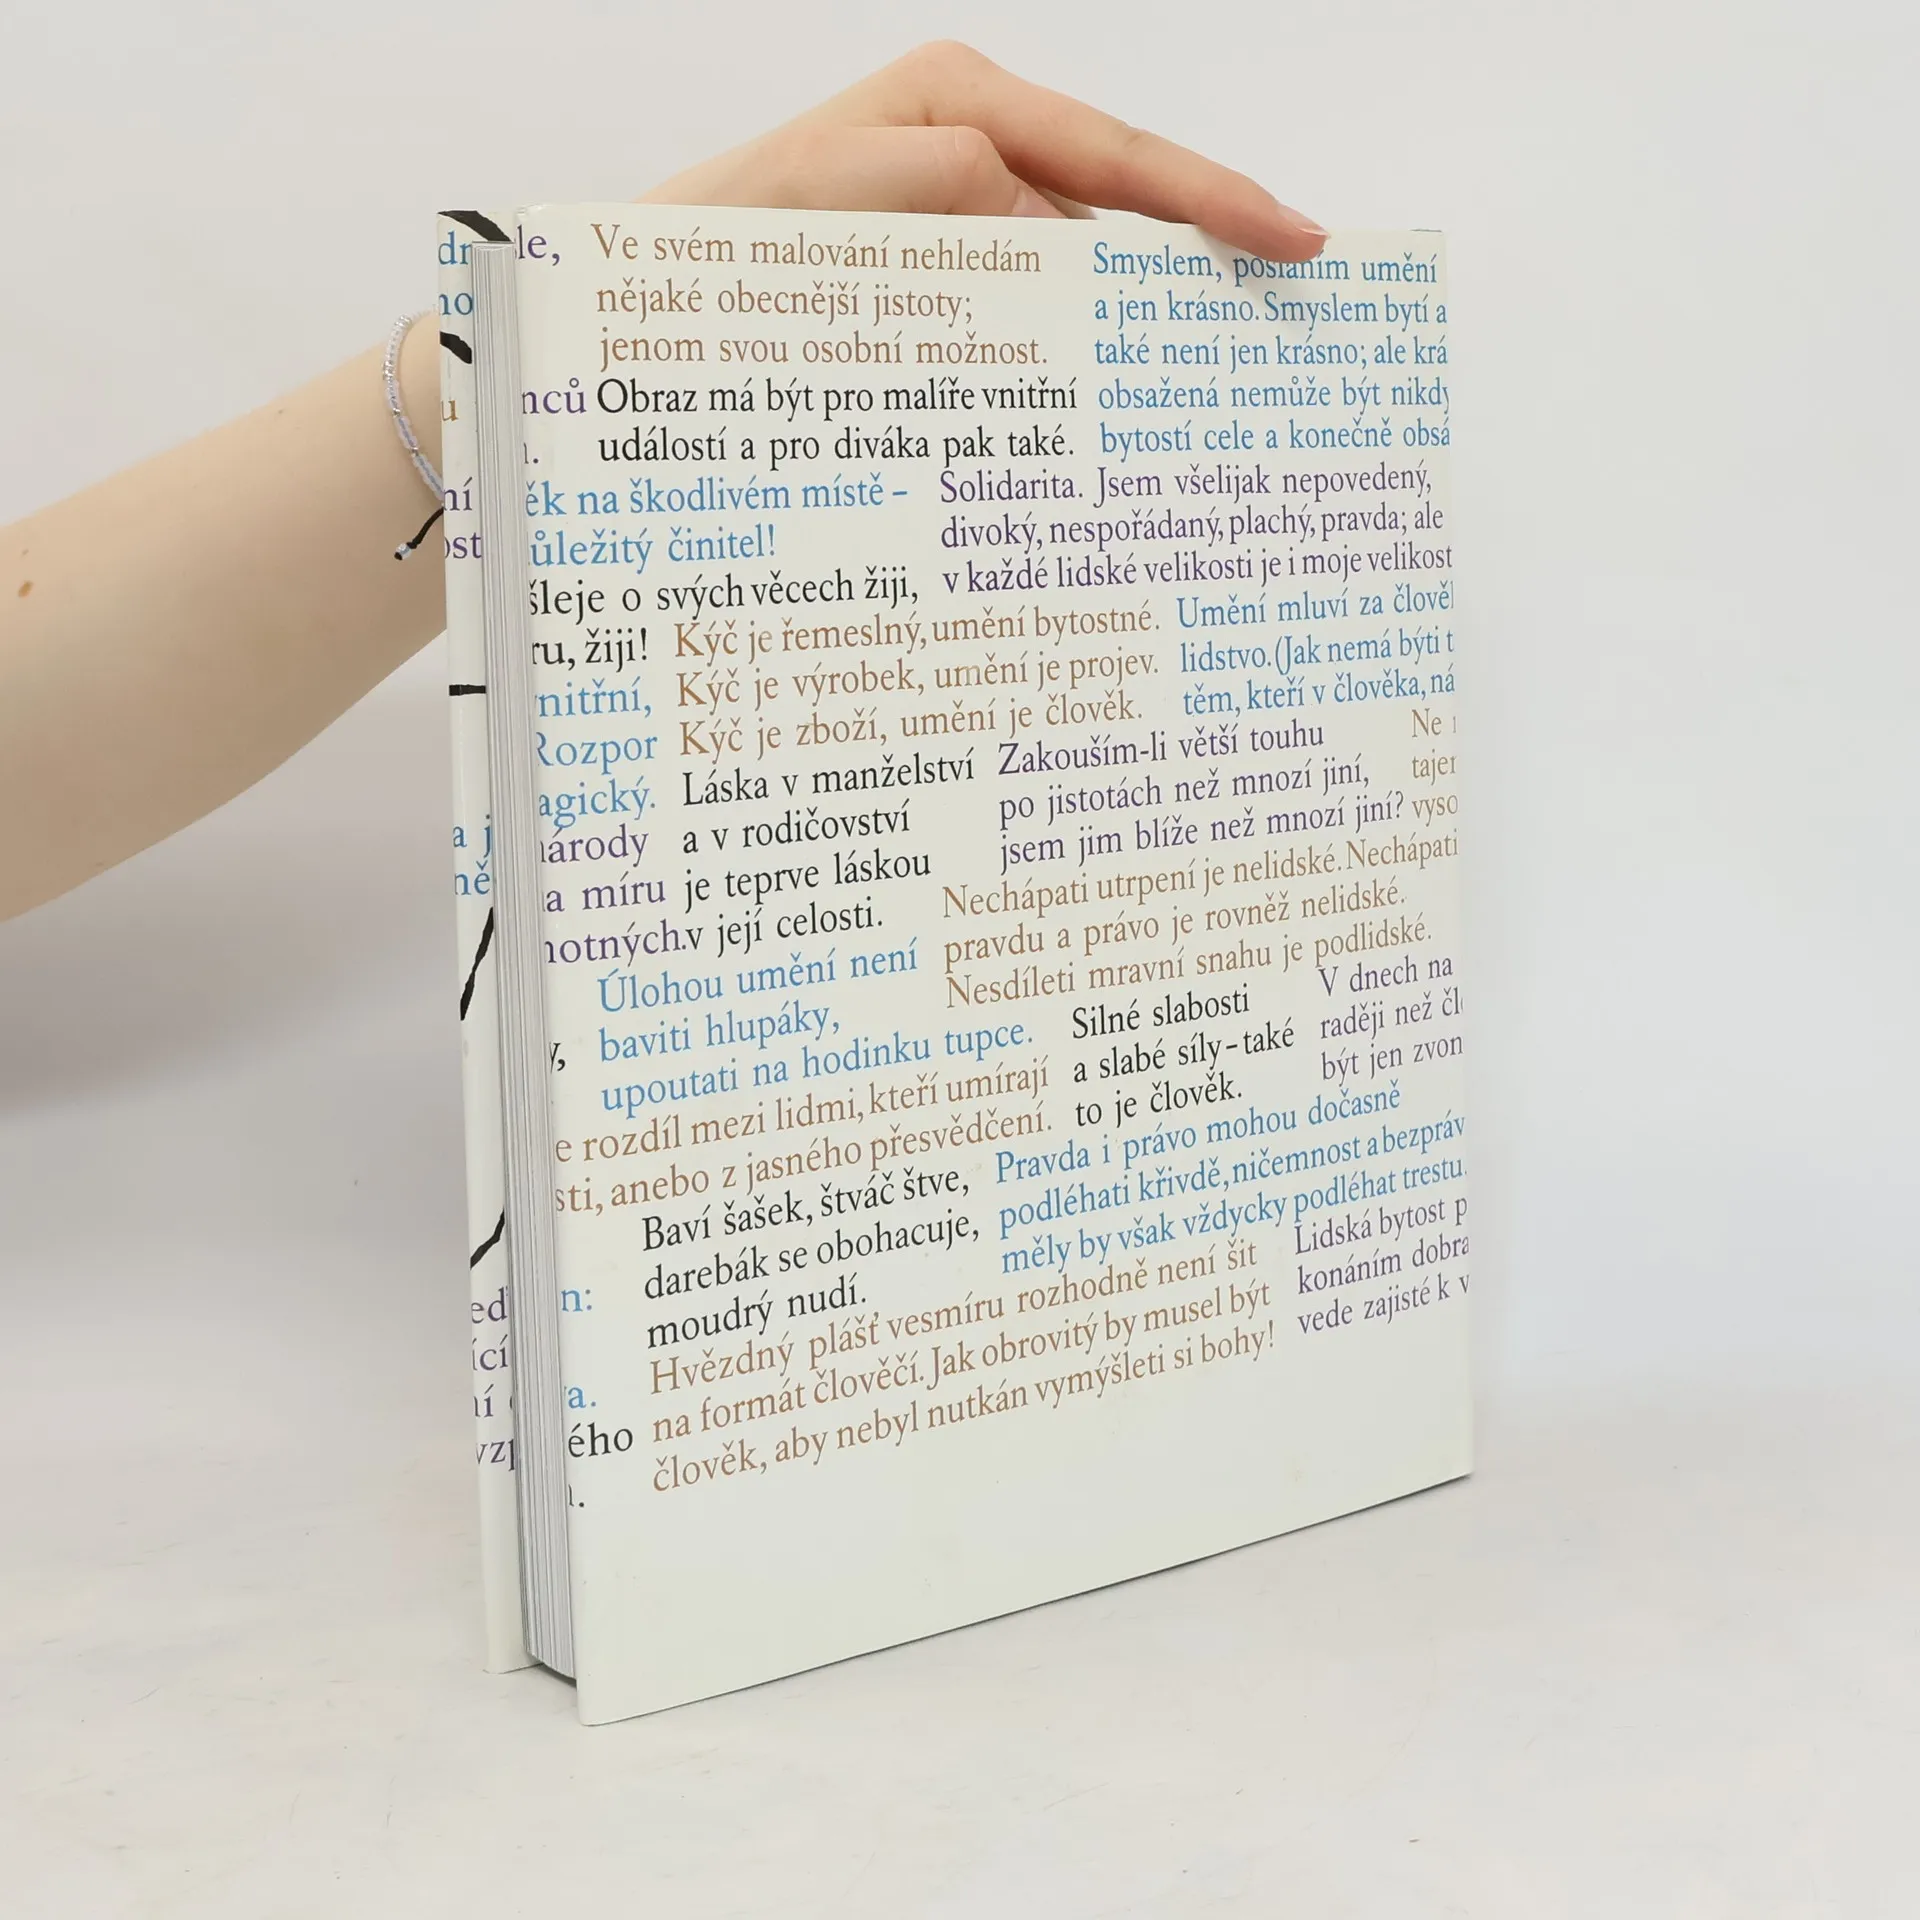 Ve svém malování nehledám
nějaké obecnější jistoty;
jenom svou osobní možnost.
Smyslem, posláním umění
a jen krásno. Smyslem bytí a
také není jen krásno; ale krá
obsažená nemůže být nikdy
bytostí cele a konečně obsá
le,
nců
Obraz má být pro malíře vnitřní
událostí a pro diváka pak také.
ěk na škodlivém místě –
ůležitý činitel!
Solidarita. Jsem všelijak nepovedený,
divoký, nespořádaný, plachý, pravda; ale
v každé lidské velikosti je i moje velikost
šleje o svých věcech žiji,
ru, žiji!
Kýč je řemeslný, umění bytostné.
Kýč je výrobek, umění je projev.
Kýč je zboží, umění je člověk.
Umění mluví za člověk
lidstvo. (Jak nemá býti t
těm, kteří v člověka, ná
nitřní,
Rozpor
agický.
Láska v manželství
a v rodičovství
je teprve láskou
v její celosti.
Zakouším-li větší touhu
po jistotách než mnozí jiní,
jsem jim blíže než mnozí jiní?
Ne
tajem
vyso
árody
a míru
notných.
Nechápati utrpení je nelidské. Nechápati
pravdu a právo je rovněž nelidské.
Nesdíleti mravní snahu je podlidské.
Úlohou umění není
baviti hlupáky,
upoutati na hodinku tupce.
Silné slabosti
a slabé síly – také
to je člověk.
V dnech na
raději než čl
být jen zvon
e rozdíl mezi lidmi, kteří umírají
sti, anebo z jasného přesvědčení.
Pravda i právo mohou dočasně
podléhati křivdě, ničemnost a bezpráv
měly by však vždycky podléhat trestu.
Baví šašek, štváč štve,
darebák se obohacuje,
moudrý nudí.
Lidská bytost p
konáním dobra
vede zajisté k v
n:
a.
ého
Hvězdný plášť vesmíru rozhodně není šit
na formát člověčí. Jak obrovitý by musel být
člověk, aby nebyl nutkán vymýšleti si bohy!